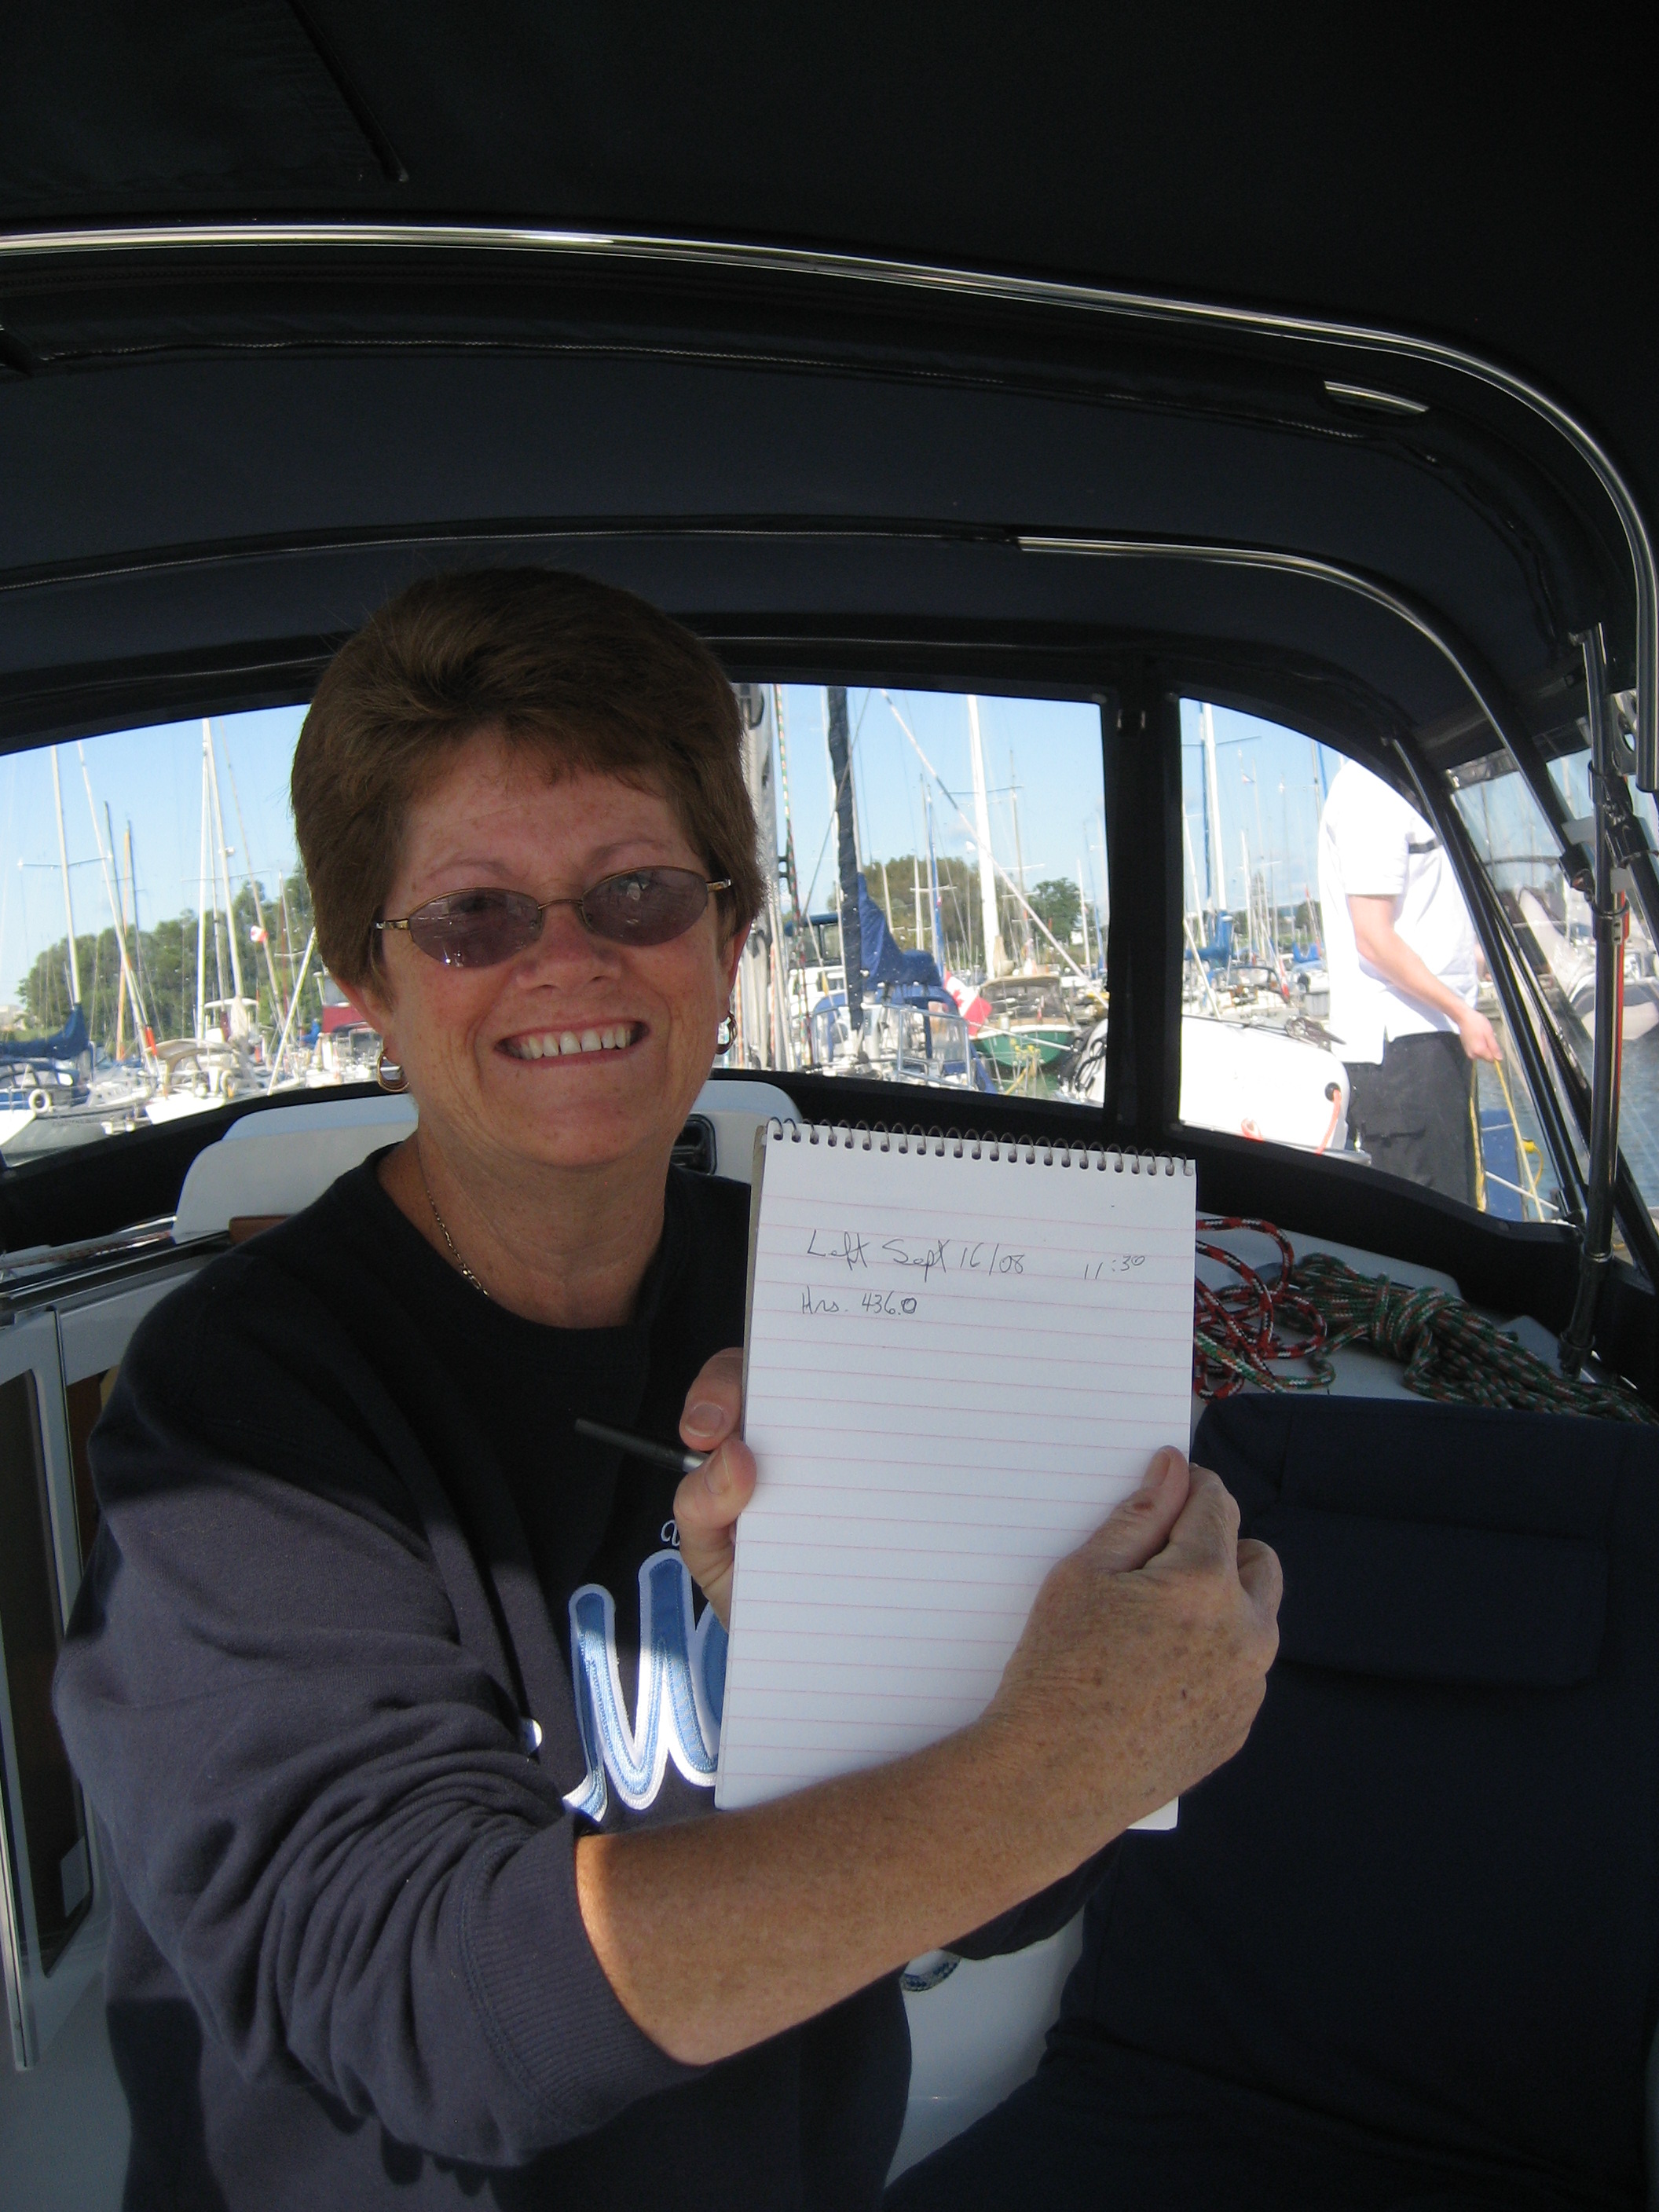 Left Sept 16/08 11:30
Hrs. 436.0